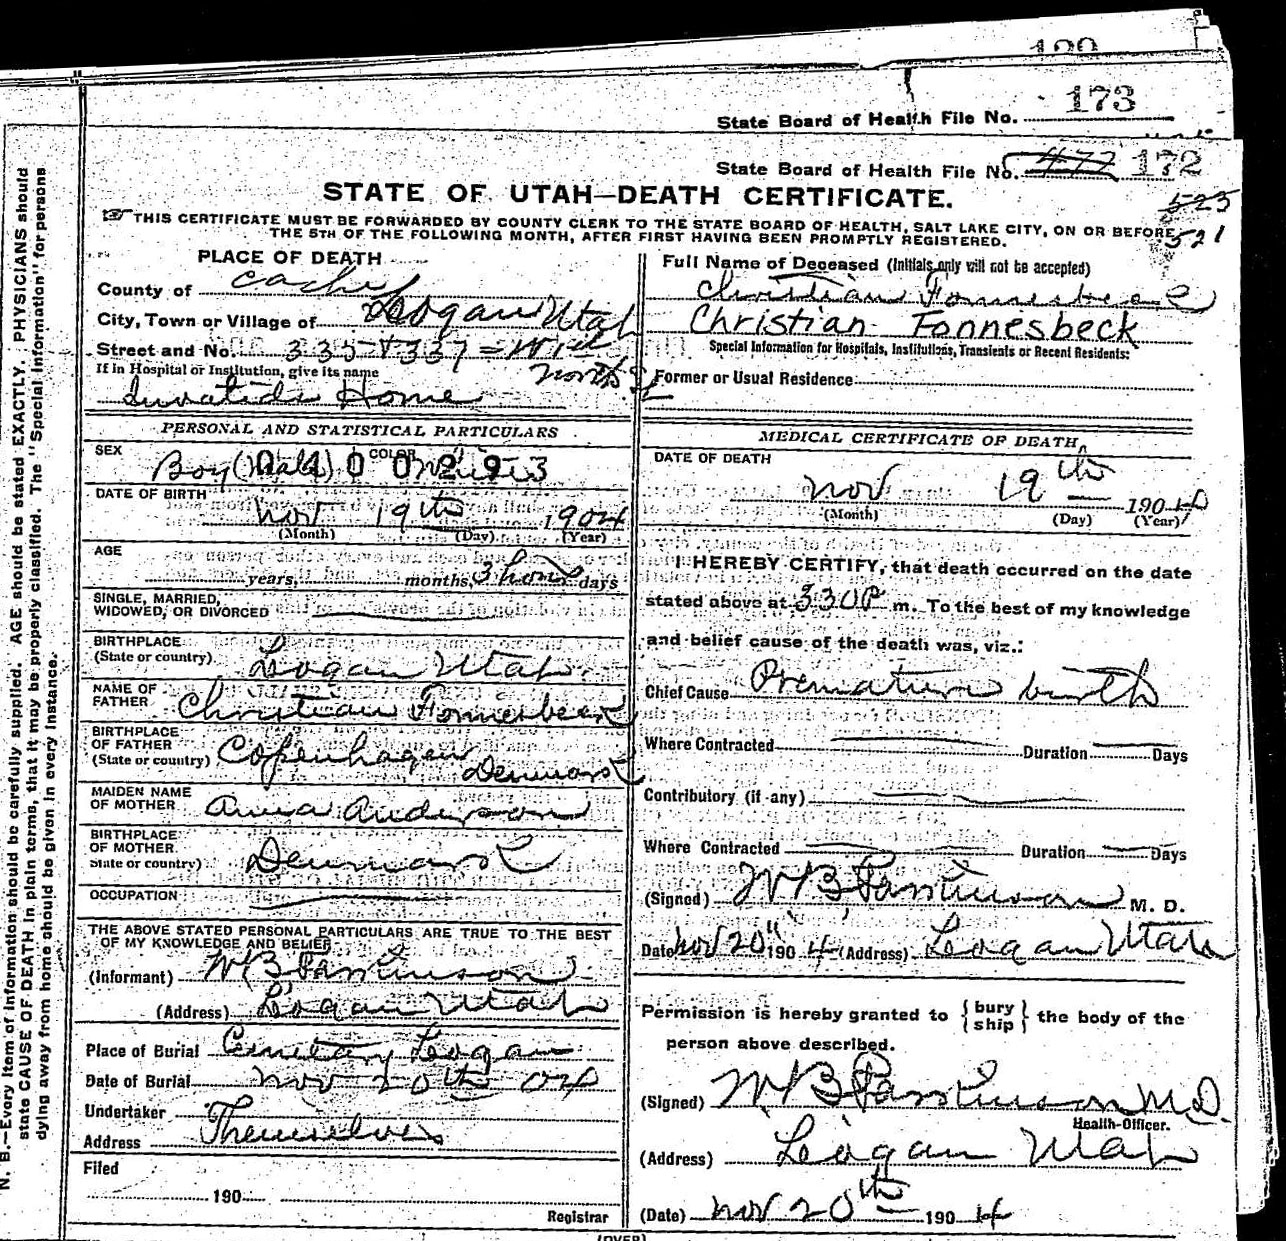 190
173
State Board of Health File No.
State Board of Health File No. 477 172
STATE OF UTAH—DEATH CERTIFICATE.
525
THIS CERTIFICATE MUST BE FORWARDED BY COUNTY CLERK TO THE STATE BOARD OF HEALTH, SALT LAKE CITY, ON OR BEFORE
THE 5TH OF THE FOLLOWING MONTH, AFTER FIRST HAVING BEEN PROMPTLY REGISTERED.
521
PLACE OF DEATH
County of Cache
City, Town or Village of Logan Utah
Street and No. 335 & 337 = West
North St
If in Hospital or Institution, give its name
Home
Full Name of Deceased (Initials only will not be accepted)
Christian Fonnesbeck
Christian Fonnesbeck
Special Information for Hospitals, Institutions, Transients or Recent Residents:
Former or Usual Residence
PERSONAL AND STATISTICAL PARTICULARS
SEX Boy (Male) COLOR White
0400293
DATE OF BIRTH
Nov 19th 1904
(Month) (Day) (Year)
AGE
years, months, 3 hours days
SINGLE, MARRIED,
WIDOWED, OR DIVORCED
BIRTHPLACE
(State or country) Logan Utah
NAME OF
FATHER Christian Fonnesbeck
BIRTHPLACE
OF FATHER
(State or country) Copenhagen
Denmark
MAIDEN NAME
OF MOTHER Anna Anderson
BIRTHPLACE
OF MOTHER
State or country) Denmark
OCCUPATION
THE ABOVE STATED PERSONAL PARTICULARS ARE TRUE TO THE BEST
OF MY KNOWLEDGE AND BELIEF
(Informant) W B Parkinson
(Address) Logan Utah
Place of Burial Cemetary Logan
Date of Burial Nov 20th 04
Undertaker Themselves
Address
Filed
190
Registrar
MEDICAL CERTIFICATE OF DEATH
DATE OF DEATH
Nov 19th 1904
(Month) (Day) (Year)
I HEREBY CERTIFY, that death occurred on the date
stated above at 3 30 P m. To the best of my knowledge
and belief cause of the death was, viz.:
Chief Cause Premature birth
Where Contracted Duration Days
Contributory (if any)
Where Contracted Duration Days
(Signed) W B Parkinson M. D.
Date Nov 20" 1904 (Address) Logan Utah
Permission is hereby granted to { bury
ship } the body of the
person above described.
(Signed) W B Parkinson M.D.
Health Officer.
(Address) Logan Utah
(Date) Nov 20th 1904
(OVER)
N. B.—Every item of information should be carefully supplied. AGE should be stated EXACTLY. PHYSICIANS should
state CAUSE OF DEATH in plain terms, that it may be properly classified. The "Special Information" for persons
dying away from home should be given in every instance.